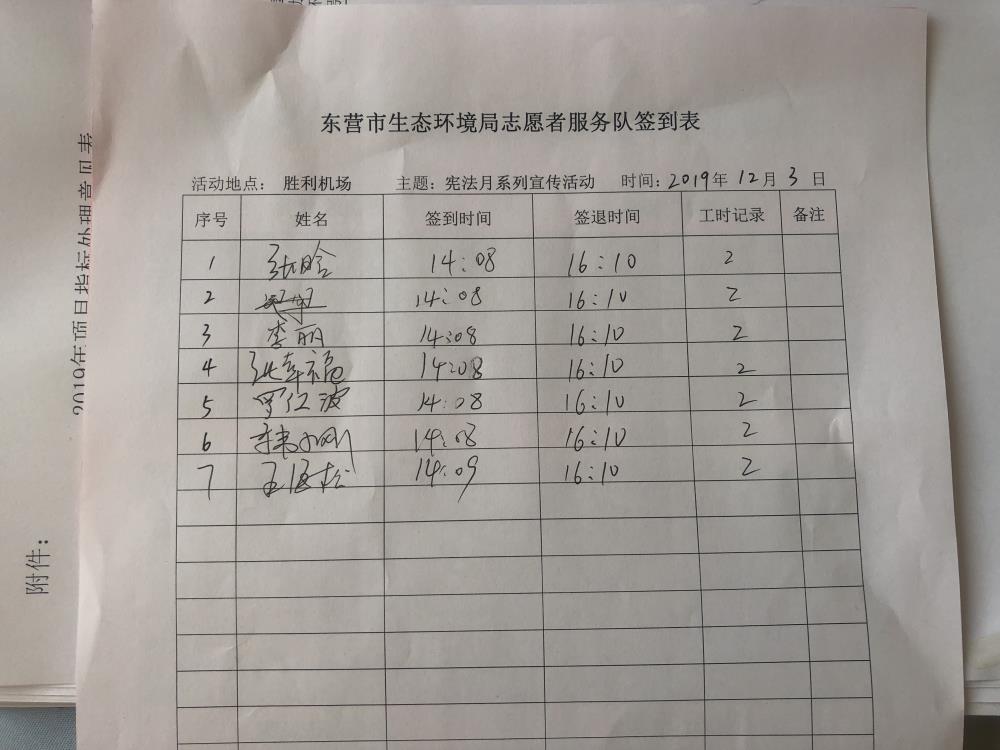 东营市生态环境局志愿者服务队签到表
活动地点： 胜利机场 主题：宪法月系列宣传活动 时间：2019年 12月 3 日
序号 姓名 签到时间 签退时间 工时记录 备注
1 张晗 14:08 16:10 2
2 14:08 16:10 2
3 李丽 14:08 16:10 2
4 张幸福 14:08 16:10 2
5 罗红波 14:08 16:10 2
6 韩小刚 14:08 16:10 2
7 14:09 16:10 2
附件：